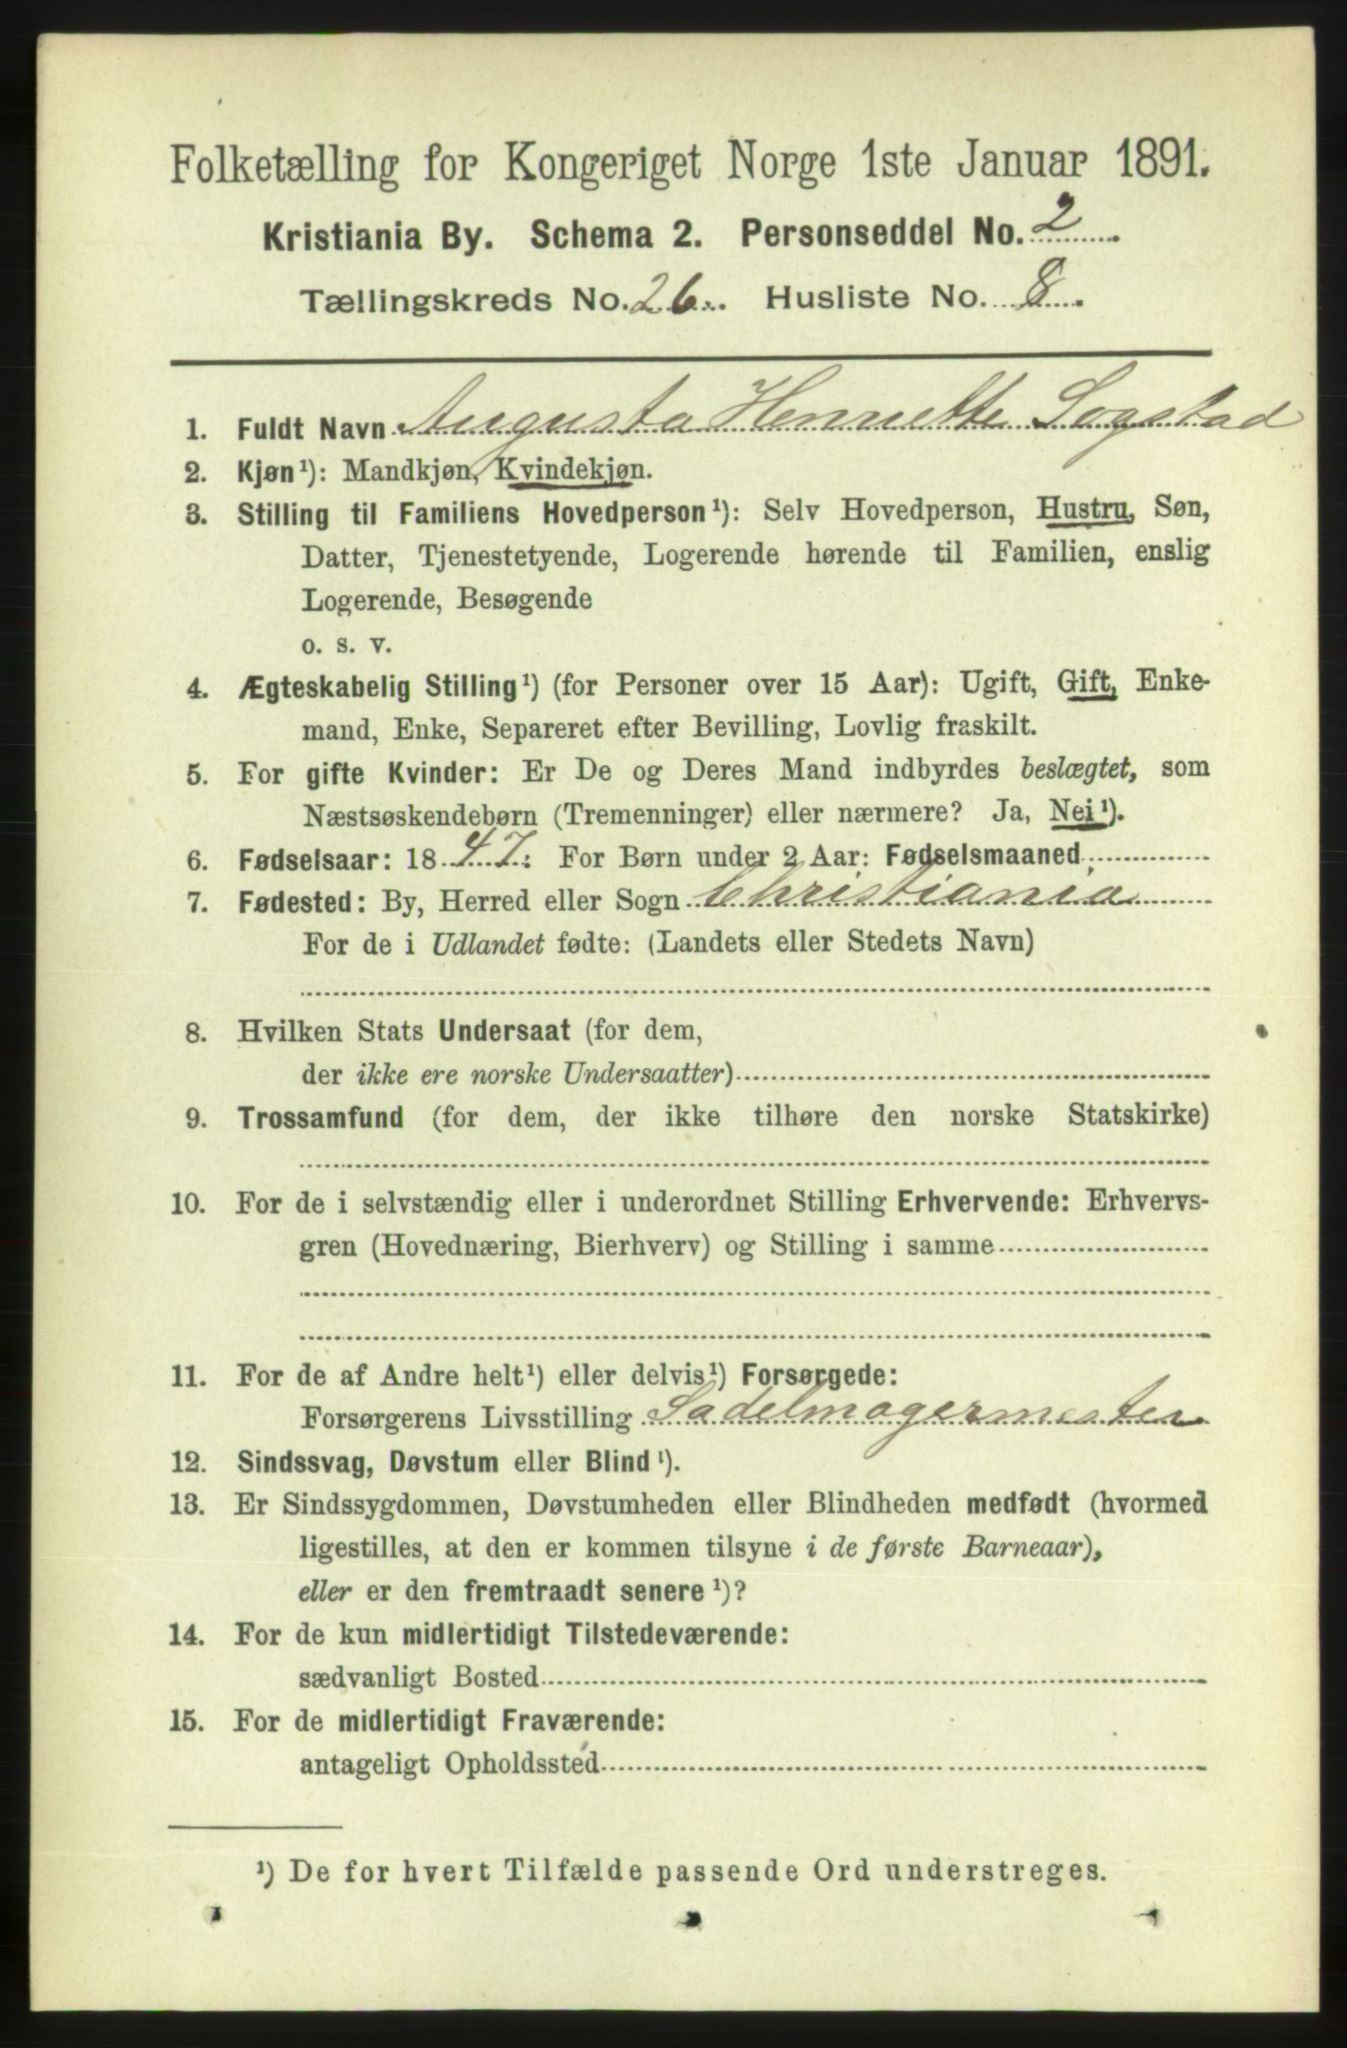 Folketælling for Kongeriget Norge 1ste Januar 1891.
Kristiania By. Schema 2. Personseddel No. 2.
Tællingskreds No. 26. Husliste No. 8.
1. Fuldt Navn Augusta Henriette Sogstad
2. Kjøn¹): Mandkjøn, Kvindekjøn.
3. Stilling til Familiens Hovedperson¹): Selv Hovedperson, Hustru, Søn,
Datter, Tjenestetyende, Logerende hørende til Familien, enslig
Logerende, Besøgende
o. s. v.
4. Ægteskabelig Stilling¹) (for Personer over 15 Aar): Ugift, Gift, Enke-
mand, Enke, Separeret efter Bevilling, Lovlig fraskilt.
5. For gifte Kvinder: Er De og Deres Mand indbyrdes beslægtet, som
Næstsøskendebørn (Tremenninger) eller nærmere? Ja, Nei¹).
6. Fødselsaar: 1847. For Børn under 2 Aar: Fødselsmaaned
7. Fødested: By, Herred eller Sogn Christiania
For de i Udlandet fødte: (Landets eller Stedets Navn)
8. Hvilken Stats Undersaat (for dem,
der ikke ere norske Undersaatter)
9. Trossamfund (for dem, der ikke tilhøre den norske Statskirke)
10. For de i selvstændig eller i underordnet Stilling Erhvervende: Erhvervs-
gren (Hovednæring, Bierhverv) og Stilling i samme
11. For de af Andre helt¹) eller delvis¹) Forsørgede:
Forsørgerens Livsstilling Sadelmagermester
12. Sindssvag, Døvstum eller Blind¹).
13. Er Sindssygdommen, Døvstumheden eller Blindheden medfødt (hvormed
ligestilles, at den er kommen tilsyne i de første Barneaar),
eller er den fremtraadt senere¹)?
14. For de kun midlertidigt Tilstedeværende:
sædvanligt Bosted
15. For de midlertidigt Fraværende:
antageligt Opholdssted
¹) De for hvert Tilfælde passende Ord understreges.